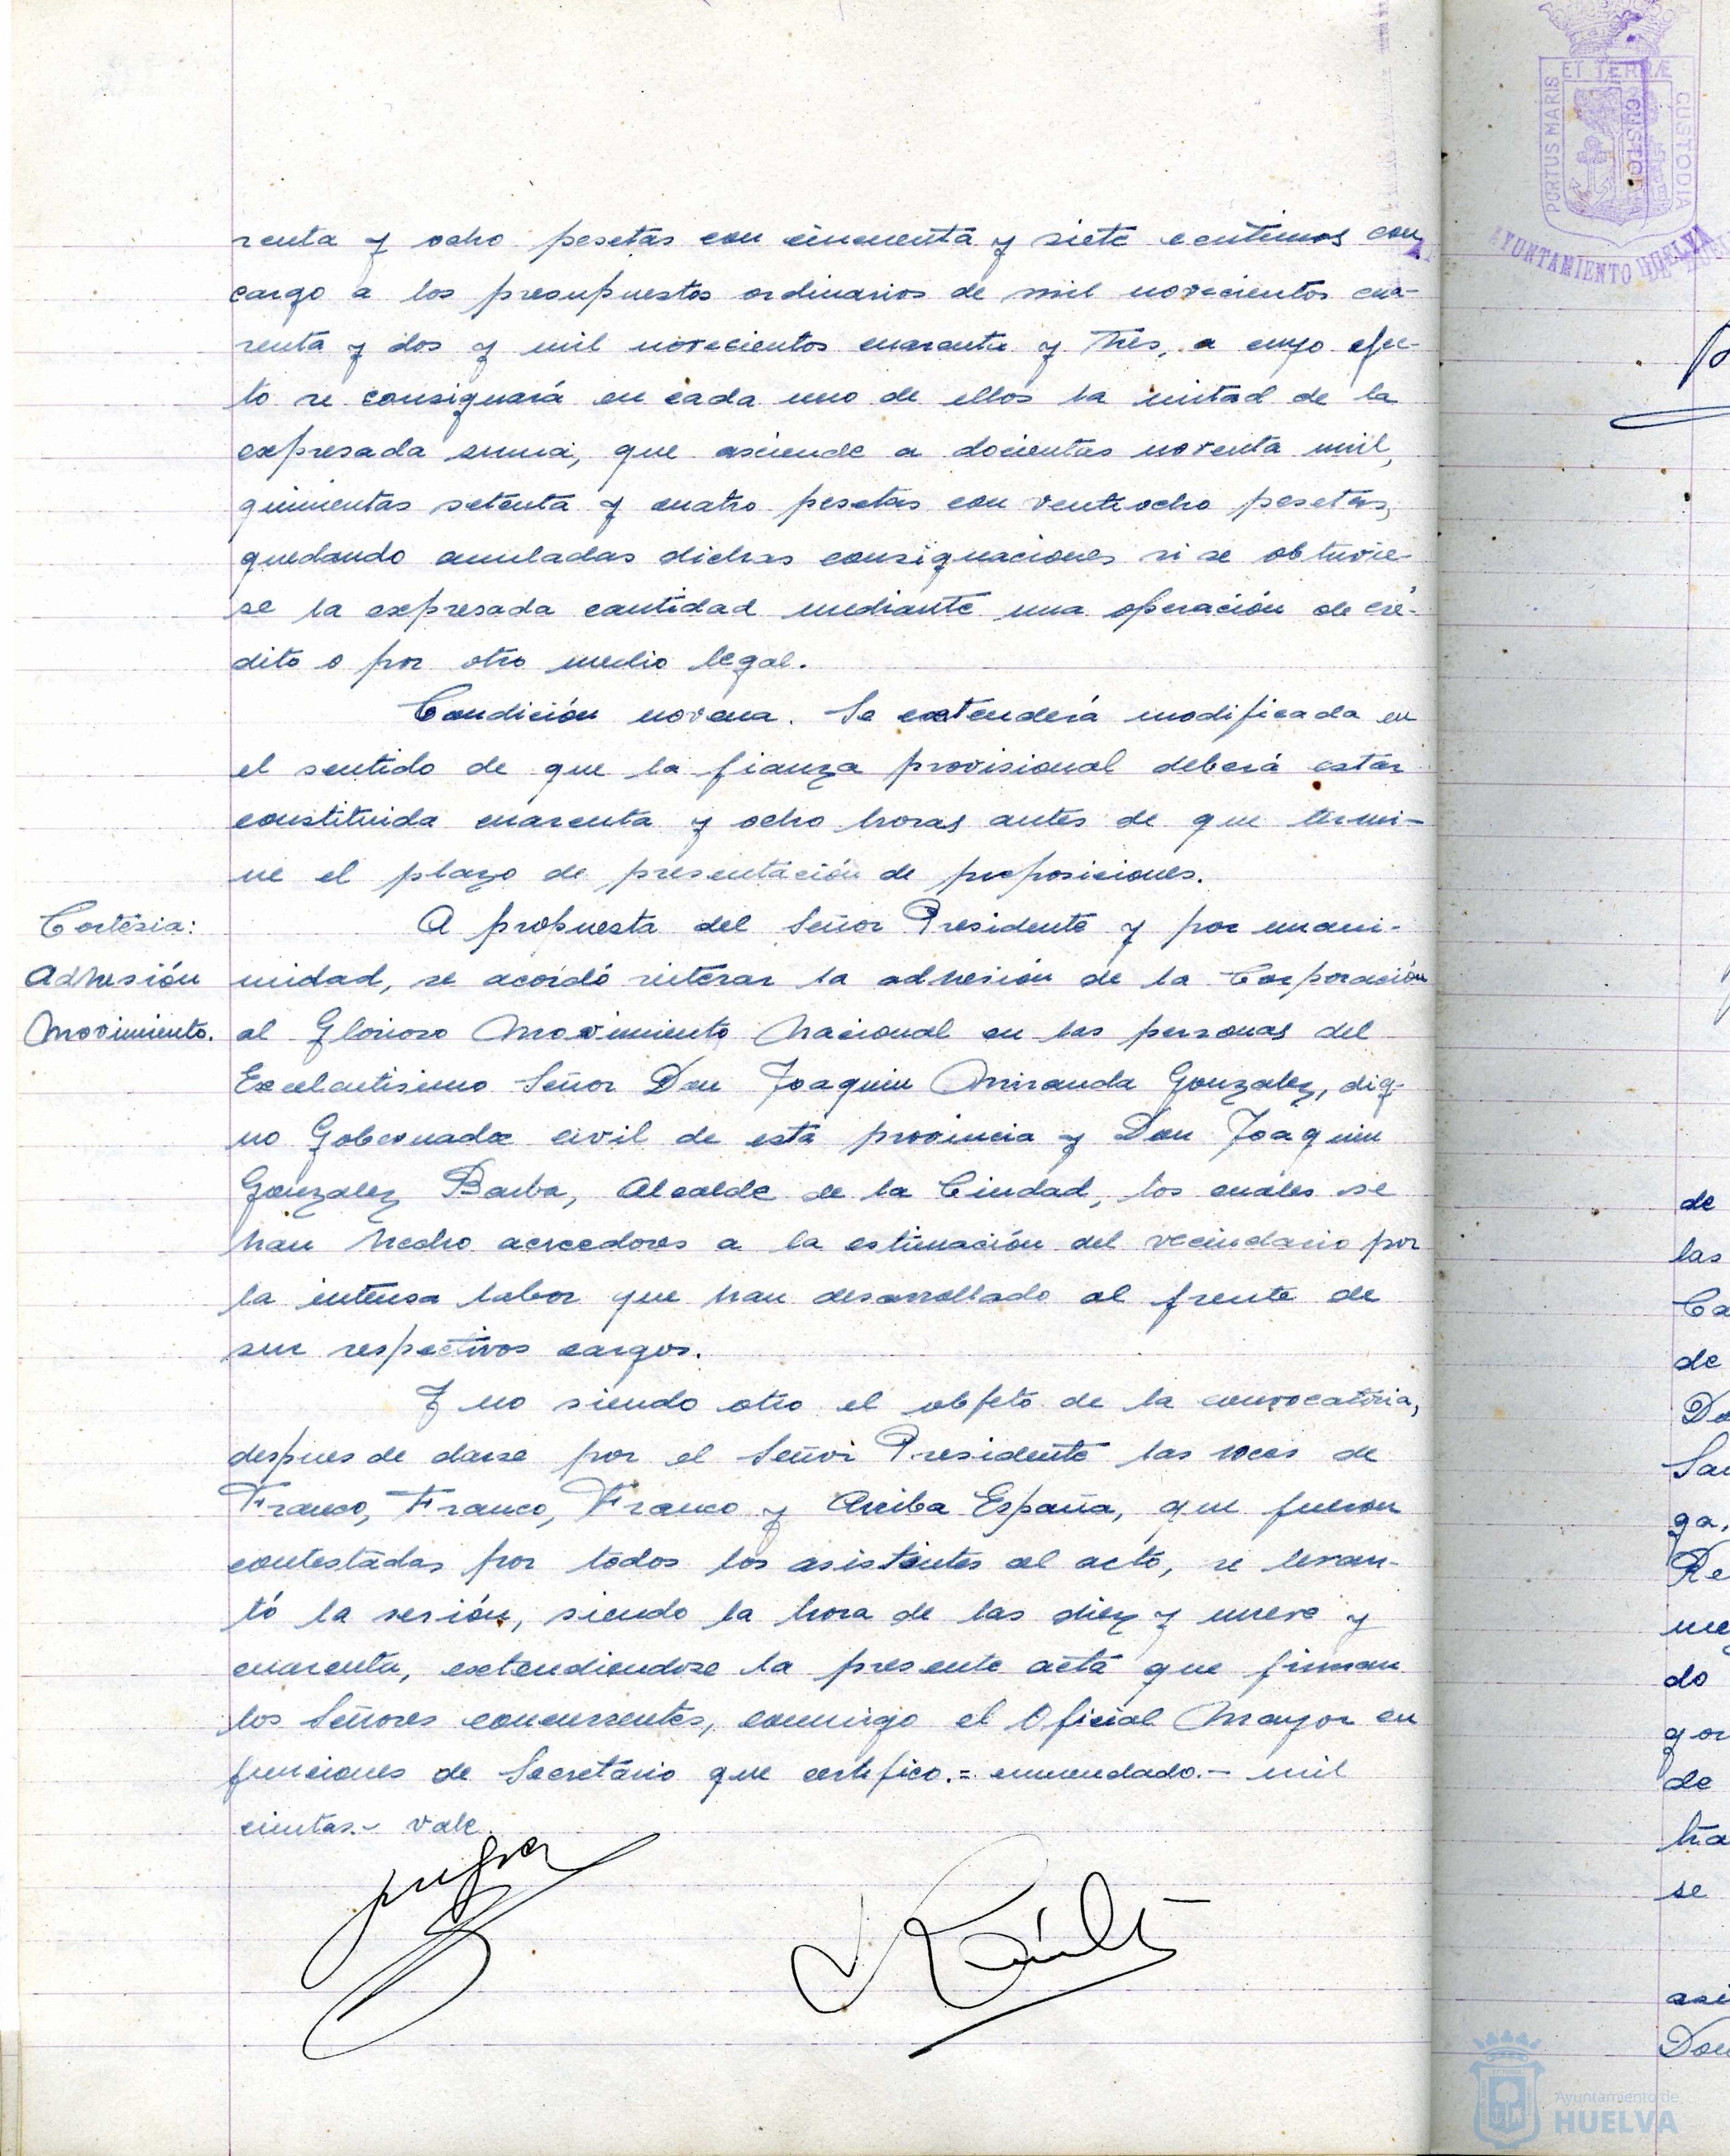 renta y ocho pesetas con cincuenta y siete centimos con
cargo a los presupuestos ordinarios de mil novecientos cua-
renta y dos y mil novecientos cuarenta y tres, a cuyo efec-
to se consignará en cada uno de ellos la mitad de la
expresada suma, que asciende a docientas noventa mil,
quinientas setenta y cuatro pesetas con ventiocho pesetas,
quedando anuladas dichas consignaciones si se obtuvie-
se la expresada cantidad mediante una operación de cré-
dito o por otro medio legal.
Condición novena. Se entenderá modificada en
el sentido de que la fianza provisional deberá estar
constituida cuarenta y ocho horas antes de que termi-
ne el plazo de presentación de proposiciones.
Cortesia:
Adhesión
Movimiento.
A propuesta del Señor Presidente y por unani-
midad, se acordó reiterar la adhesión de la Corporación
al Glorioso Movimiento Nacional en las personas del
Excelentisimo Señor Don Joaquin Miranda Gonzalez, dig-
no Gobernador civil de esta provincia y Don Joaquin
Gonzalez Barba, Alcalde de la Ciudad, los cuáles se
han hecho acreedores a la estimación del vecindario por
la intensa labor que han desarrollado al frente de
sus respectivos cargos.
Y no siendo otro el objeto de la convocatoria,
despues de darse por el Señor Presidente las voces de
Franco, Franco, Franco y Arriba España, que fueron
contestadas por todos los asistentes al acto, se levan-
tó la sesión, siendo la hora de las diez y nueve y
cuarenta, extendiendose la presente acta que firman
los Señores concurrentes, conmigo el Oficial Mayor en
funciones de Secretario que certifico.= enmendado.- mil
cientas.- vale.
PORTUS MARIS ET TERRÆ CUSTODIA
AYUNTAMIENTO HUELVA
de
las
Ca
de
Do
San
ga,
Re
me
do
gor
de
tra
se
asi
Don
Ayuntamiento de
HUELVA